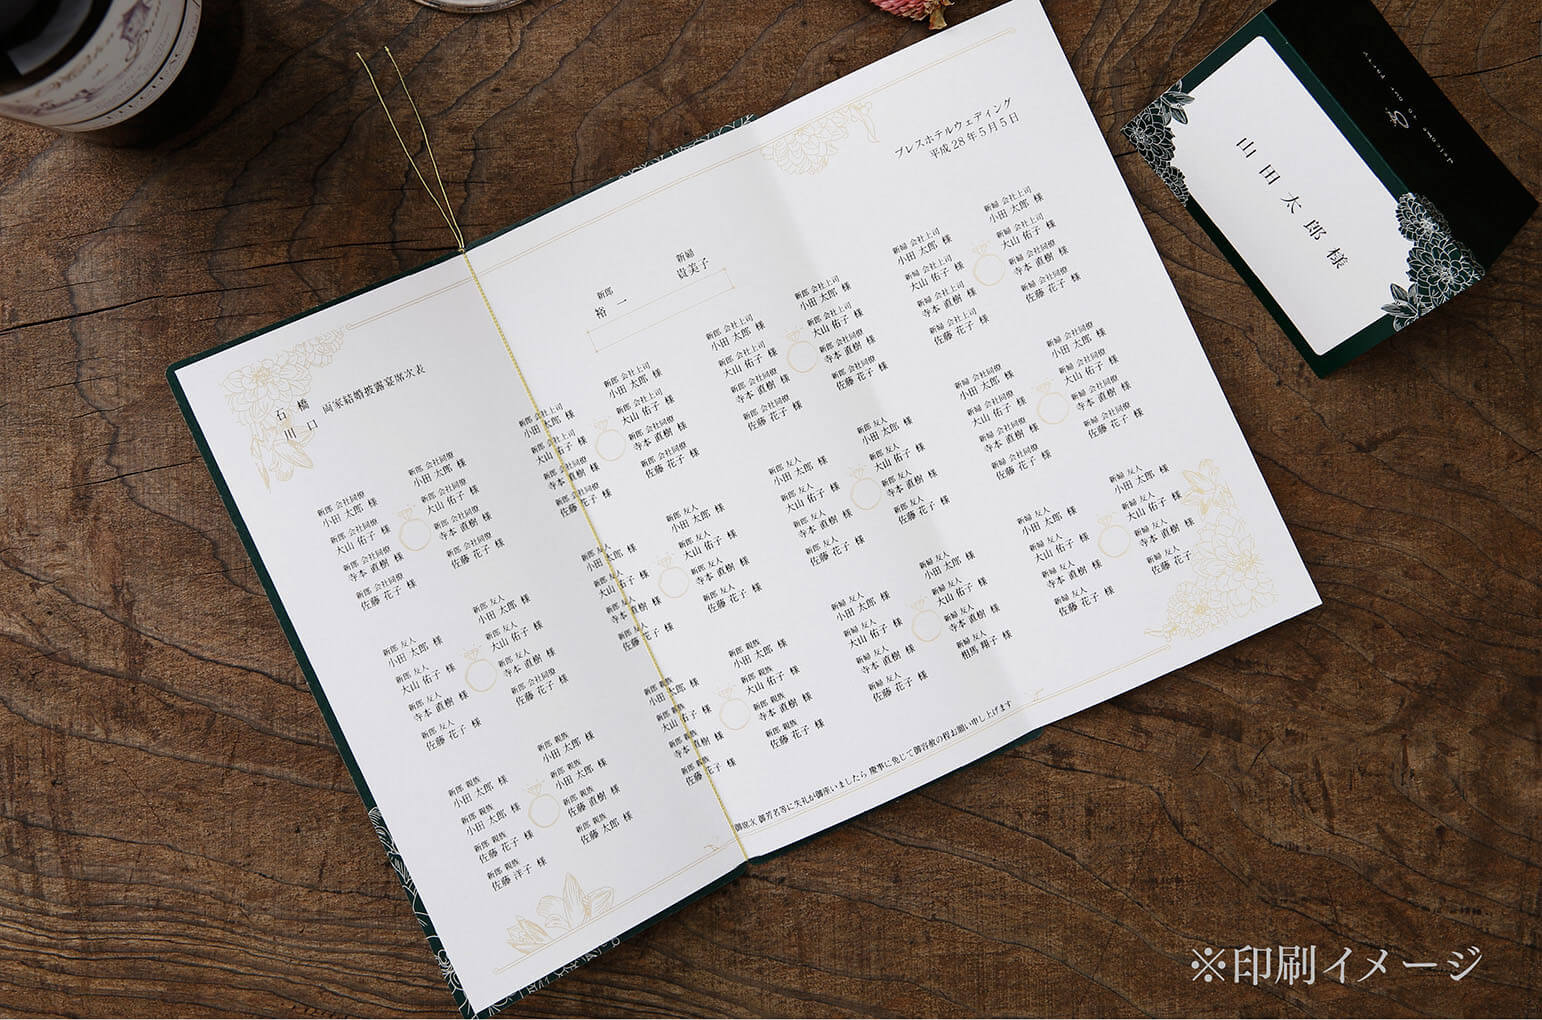 プレスホテルウェディング
平成28年5月5日
石橋
川口
両家結婚披露宴席次表
新郎
裕一
新婦
貴美子
新郎 会社同僚
小田 太郎 様
新郎 会社同僚
大山 佑子 様
新郎 会社同僚
寺本 直樹 様
新郎 会社同僚
佐藤 花子 様
新郎 会社同僚
小田 太郎 様
新郎 会社同僚
大山 佑子 様
新郎 会社同僚
寺本 直樹 様
新郎 会社同僚
佐藤 花子 様
新郎 会社上司
小田 太郎 様
新郎 会社上司
大山 佑子 様
新郎 会社同僚
寺本 直樹 様
新郎 会社同僚
佐藤 花子 様
新郎 会社上司
小田 太郎 様
新郎 会社上司
大山 佑子 様
新郎 会社同僚
寺本 直樹 様
新郎 会社同僚
佐藤 花子 様
新郎 会社上司
小田 太郎 様
新郎 会社上司
大山 佑子 様
新郎 会社同僚
寺本 直樹 様
新郎 会社同僚
佐藤 花子 様
新郎 会社上司
小田 太郎 様
新郎 会社上司
大山 佑子 様
新郎 会社同僚
寺本 直樹 様
新郎 会社同僚
佐藤 花子 様
新婦 会社上司
小田 太郎 様
新婦 会社上司
大山 佑子 様
新婦 会社上司
寺本 直樹 様
新婦 会社上司
佐藤 花子 様
新婦 会社上司
小田 太郎 様
新婦 会社上司
大山 佑子 様
新婦 会社同僚
寺本 直樹 様
新婦 会社同僚
佐藤 花子 様
新郎 友人
小田 太郎 様
新郎 友人
大山 佑子 様
新郎 友人
寺本 直樹 様
新郎 友人
佐藤 花子 様
新郎 友人
大山 佑子 様
新郎 友人
寺本 直樹 様
新郎 会社同僚
佐藤 花子 様
新郎 友人
小田 太郎 様
新郎 友人
大山 佑子 様
新郎 友人
寺本 直樹 様
新郎 友人
佐藤 花子 様
新郎 友人
小田 太郎 様
新郎 友人
大山 佑子 様
新郎 友人
寺本 直樹 様
新郎 友人
佐藤 花子 様
新郎 友人
小田 太郎 様
新郎 友人
大山 佑子 様
新郎 友人
寺本 直樹 様
新郎 友人
佐藤 花子 様
新郎 友人
小田 太郎 様
新郎 友人
大山 佑子 様
新郎 友人
寺本 直樹 様
新郎 友人
佐藤 花子 様
新婦 会社同僚
小田 太郎 様
新婦 会社同僚
大山 佑子 様
新婦 会社同僚
寺本 直樹 様
新婦 会社同僚
佐藤 花子 様
新婦 会社同僚
小田 太郎 様
新婦 会社同僚
大山 佑子 様
新婦 会社同僚
寺本 直樹 様
新婦 会社同僚
佐藤 花子 様
新郎 親族
小田 太郎 様
新郎 親族
小田 太郎 様
新郎 親族
佐藤 花子 様
新郎 親族
佐藤 洋子 様
新郎 親族
小田 太郎 様
新郎 親族
佐藤 直樹 様
新郎 親族
佐藤 太郎 様
新郎 親族
小田 太郎 様
新郎 親族
大山 佑子 様
新郎 親族
寺本 直樹 様
新郎 親族
佐藤 花子 様
新郎 親族
小田 太郎 様
新郎 親族
大山 佑子 様
新郎 親族
寺本 直樹 様
新郎 親族
佐藤 花子 様
新婦 友人
小田 太郎 様
新婦 友人
大山 佑子 様
新婦 友人
寺本 直樹 様
新婦 友人
佐藤 花子 様
新婦 友人
小田 太郎 様
新婦 友人
大山 佑子 様
新婦 友人
寺本 直樹 様
新婦 友人
相馬 翔子 様
新婦 友人
小田 太郎 様
新婦 友人
大山 佑子 様
新婦 友人
寺本 直樹 様
新婦 友人
佐藤 花子 様
新婦 友人
小田 太郎 様
新婦 友人
大山 佑子 様
新婦 友人
寺本 直樹 様
新婦 友人
佐藤 花子 様
御席次 御芳名等に失礼が御座いましたら 慶事に免じて御容赦の程お願い申し上げます
山田太郎様
※印刷イメージ